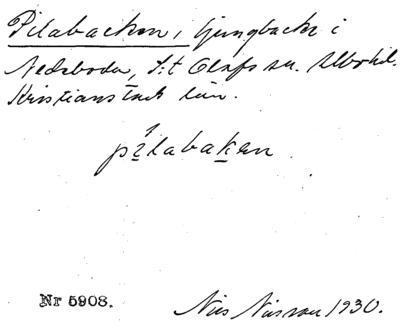 Pilabacken, ljungbacke i
Nedraboda, S:t Olofs sn. Albo hd.
Kristianstads län.
pilabaken
Nr 5908. Nils Nilsson 1930.